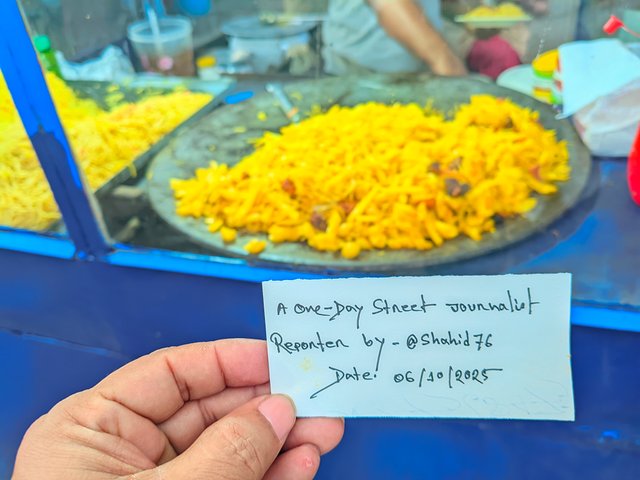 A One-Day Street Journalist
Reporter by - @Shahid76
Date: 06/10/2025